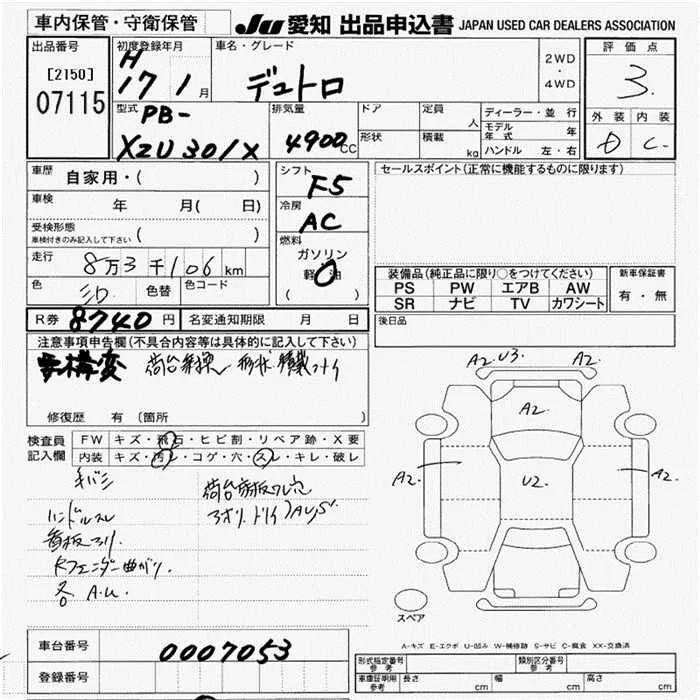 車内保管・守衛保管
JU 愛知 出品申込書 JAPAN USED CAR DEALERS ASSOCIATION
出品番号
[2150]
07115
初度登録年月
H
17 1 月
車名・グレード
デュトロ
2WD
・
4WD
評価点
3.
外装 内装
D C
型式 PB-
XZU301X
排気量
4900 CC
ドア
形状
定員
人
積載
kg
ディーラー・並行
モデル年式 年
ハンドル 左・右
車歴
自家用・( )
車検 年 月( 日)
受検形態
車検付きのみ記入して下さい ( )
走行
8万3千106km
色 色替 色コード
シフト
F5
冷房
AC
燃料
ガソリン
軽油
( )
セールスポイント(正常に機能するものに限ります)
装備品(純正品に限り○をつけてください)
PS PW エアB AW
SR ナビ TV カワシート
新車保証書
有・無
後日品
R券 8740円
名変通知期限 月 日
注意事項申告欄(不具合内容等は具体的に記入して下さい)
構変 荷台 形状
修復歴 有 (箇所 )
検査員
記入欄
FW キズ・飛石・ヒビ割・リペア跡・X要
内装 キズ・汚レ・コゲ・穴・スレ・キレ・破レ
ハンドルスレ
曲がり
各 A.U.
A2. U3. A2.
A2.
A2. U2. A2.
スペア
A-キズ E-エクボ U-凹み W-補修跡 S-サビ C-腐食 XX-交換済
車台番号
0007053
登録番号
形式指定番号
参考
類別区分番号
参考
車庫証明用
参考
長さ cm 幅 cm 高さ cm